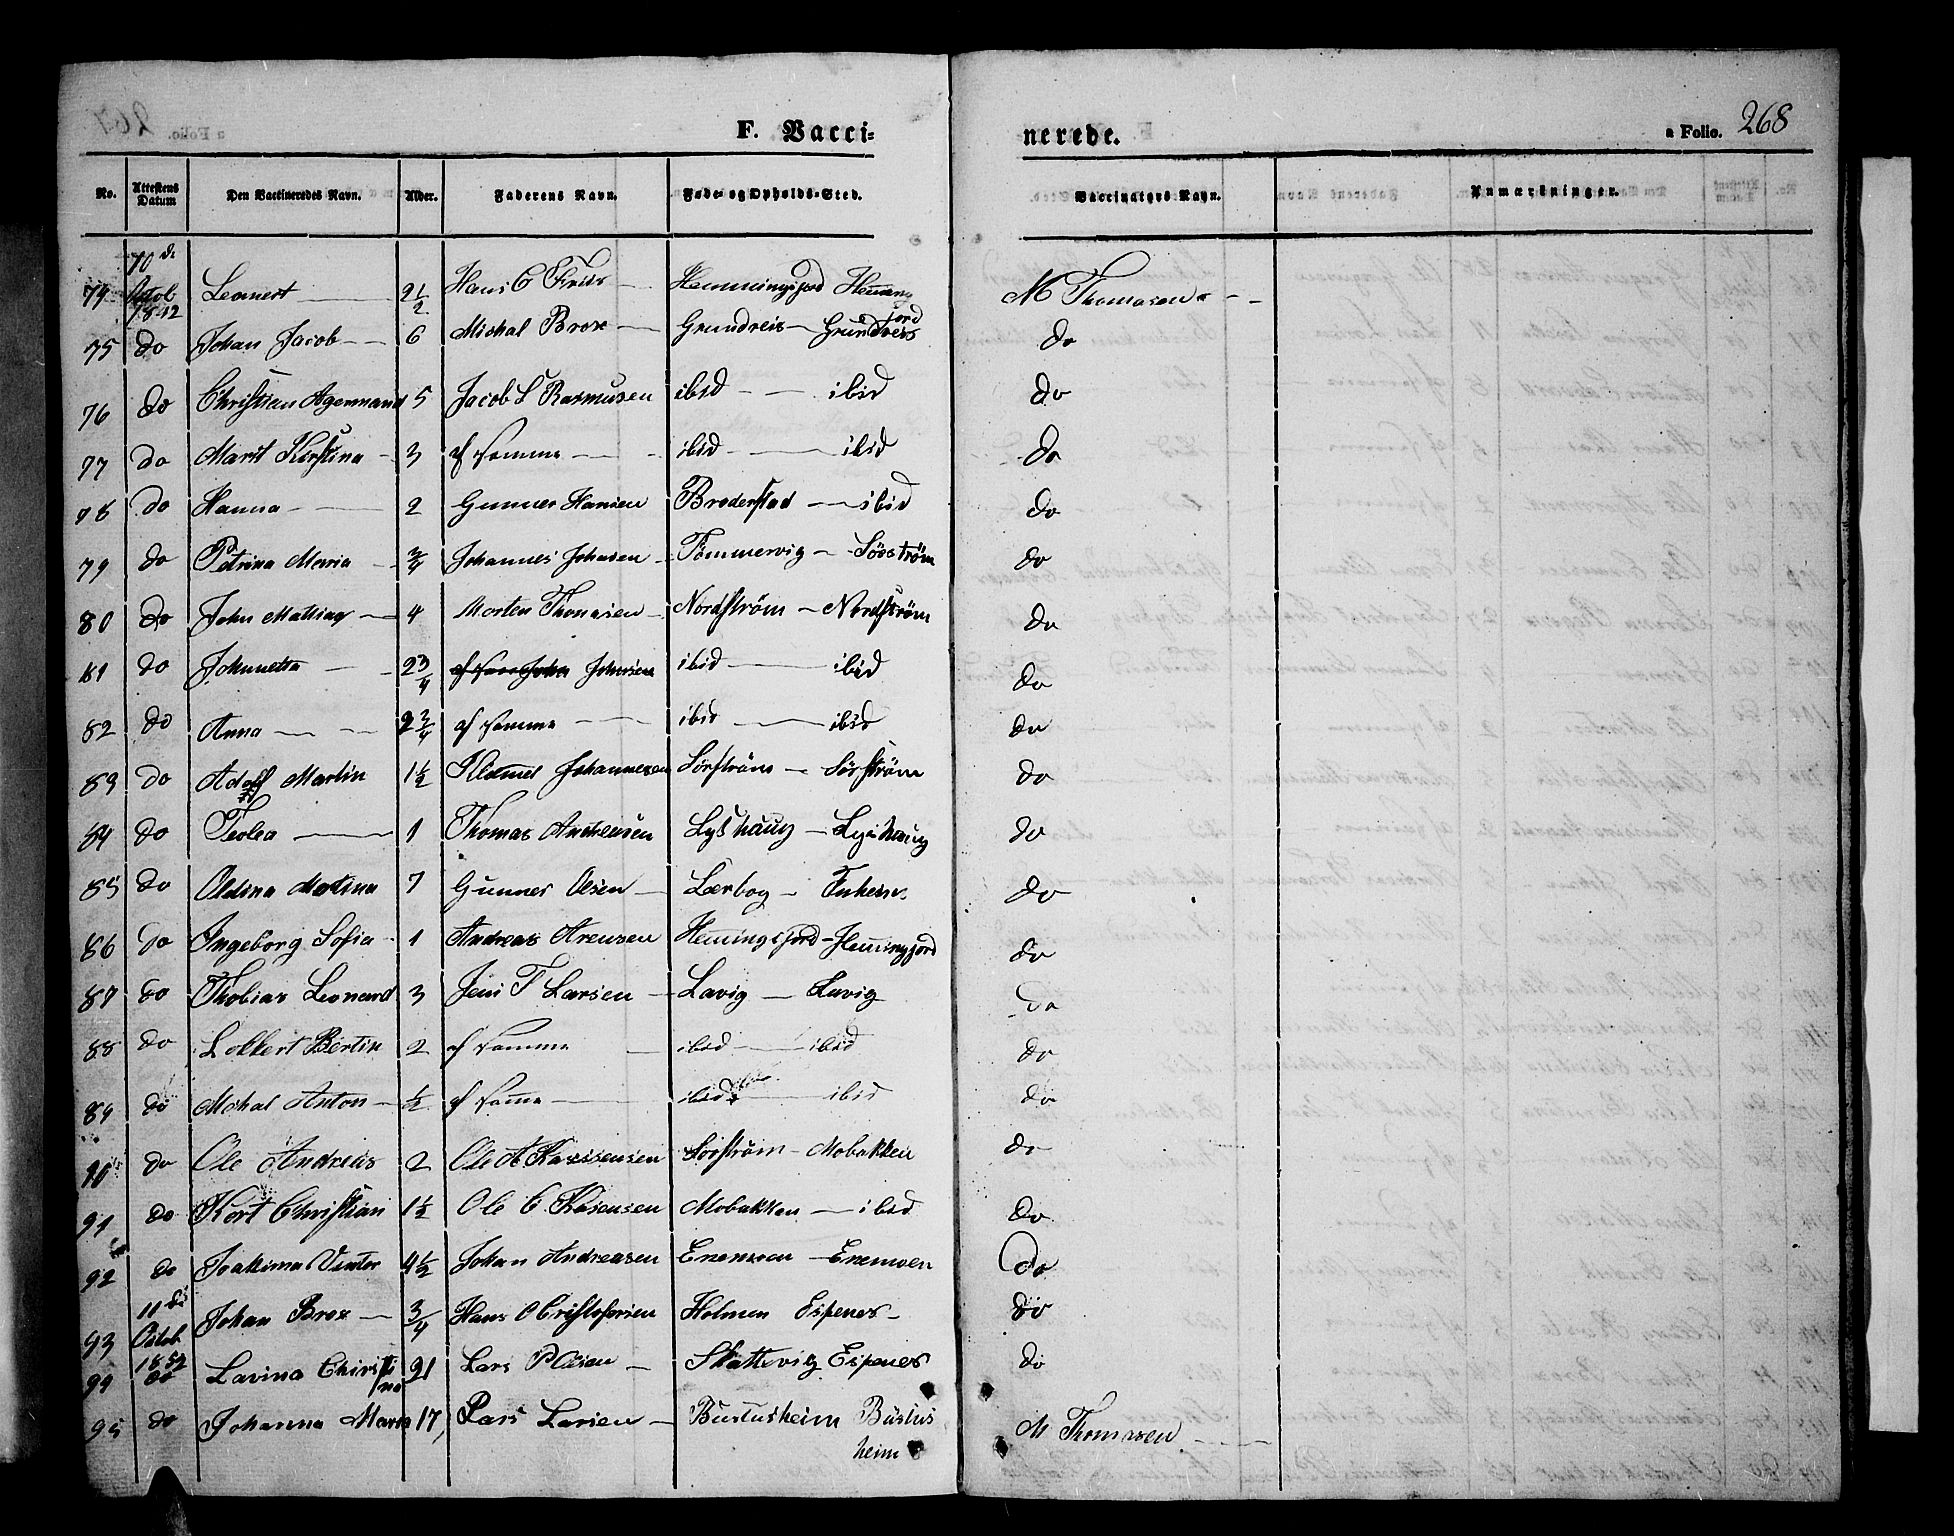 F. Vacci=
nerede.
a Folio. 268
No. Attestens Datum Den Vaccineredes Navn. Alder. Faderens Navn. Føde- og Opholds-Sted. Vaccinateurs Navn. Anmærkninger.
74 10de Octob 1852 Leonert 2 1/2 Hans C Friis Hemmingsjord Hem̄ingjord M Thomasen
75 do Johan Jacob 6 Michal Brox Grundreis Grundreis do
76 do Christian Agermand 5 Jacob L Rasmusen ibid ibid do
77 do Marit Kirstina 3 af samme ibid ibid do
78 do Hanna 2 Gunner Hansen Broderstad ibid do
79 do Petrina Maria 3/4 Johannes Johnsen Tömmervig Söström do
80 do John Mathias 4 Morten Thomasen Nordström Nordström do
81 do Johnetta 2 3/4 Johnsen ibid ibid do
82 do Anna 2 3/4 af samme ibid ibid do
83 do Adolf Martin 1 1/2 Klemet Johannesen Sörström Sörström do
84 do Teolea 1 Thomas Andreasen Lyshaug Lyshaug do
85 do Oldina Martina 7 Gunner Olsen Lærbog do
86 do Ingeborg Sofia 1 Andreas Arensen Hem̄ingsjord Hem̄ingjord do
87 do Thobias Leonard 3 Jens T Larsen Lavig Lavig do
88 do Lokkert Bertin 2 af samme ibid ibid do
89 do Michal Anton 1/2 af sam̄e ibid ibid do
90 do Ole Andreas 2 Ole A Sörström Mobakken do
91 do Kort Christian 1 1/2 Ole C. Mobakken ibid do
92 do Joakima 4 1/2 Johan Andreasen Enemoen Enemoen do
93 11de Octob 1852 Johan Brox 3/4 Hans Cristofersen Holmen Espenes do
94 do Lavina Christina 21 Lars P Olsen Skattevig Espenes do
95 do Johanna Maria 17 Lars Larsen Bustusheim Bustusheim M Thomasen